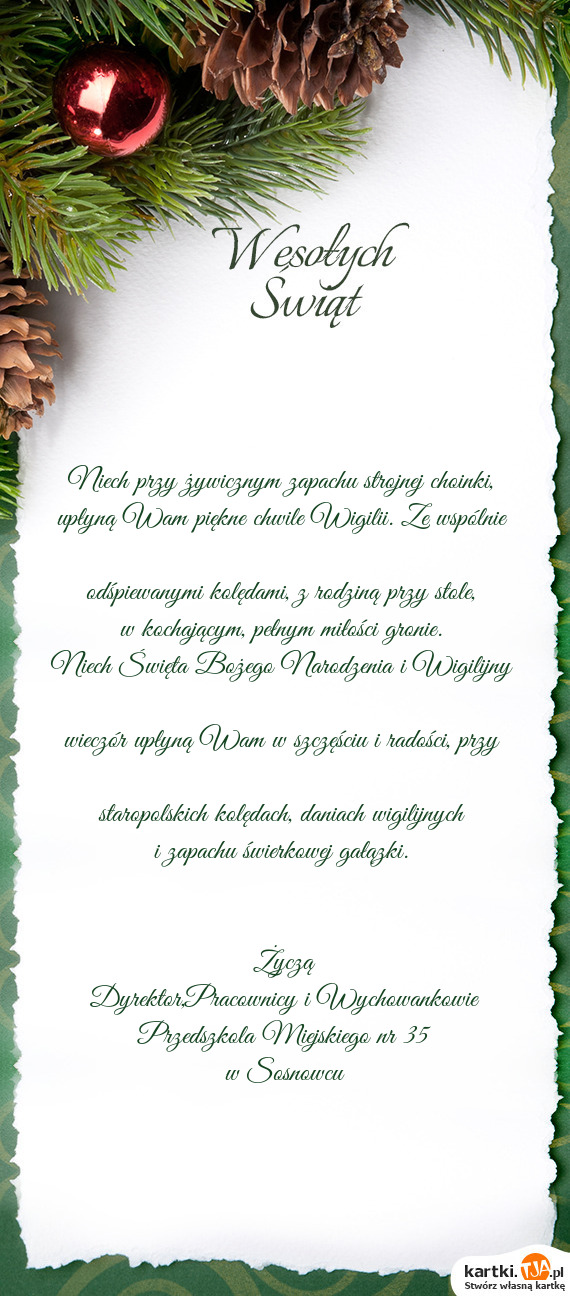 Wesołych
Świąt
Niech przy żywicznym zapachu strojnej choinki,
upłyną Wam piękne chwile Wigilii. Ze wspólnie
odśpiewanymi kolędami, z rodziną przy stole,
w kochającym, pełnym miłości gronie.
Niech Święta Bożego Narodzenia i Wigilijny
wieczór upłyną Wam w szczęściu i radości, przy
staropolskich kolędach, daniach wigilijnych
i zapachu świerkowej gałązki.
Życzą
Dyrektor,Pracownicy i Wychowankowie
Przedszkola Miejskiego nr 35
w Sosnowcu
kartki.TJA.pl
Stwórz własną kartkę